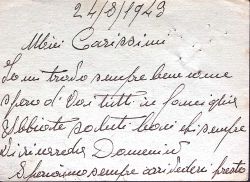 24/8/1943
Miei Carissimi
Io mi trovo sempre bene come
spero di Voi tutti in famiglia
Abbiate saluti baci chi sempre
Domenico
Speriamo sempre vedervi presto